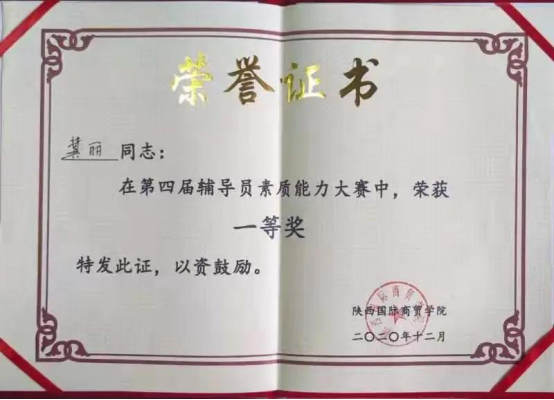 荣誉证书
龚丽 同志：
在第四届辅导员素质能力大赛中，荣获
一等奖
特发此证，以资鼓励。
陕西国际商贸学院
二〇二〇年十二月